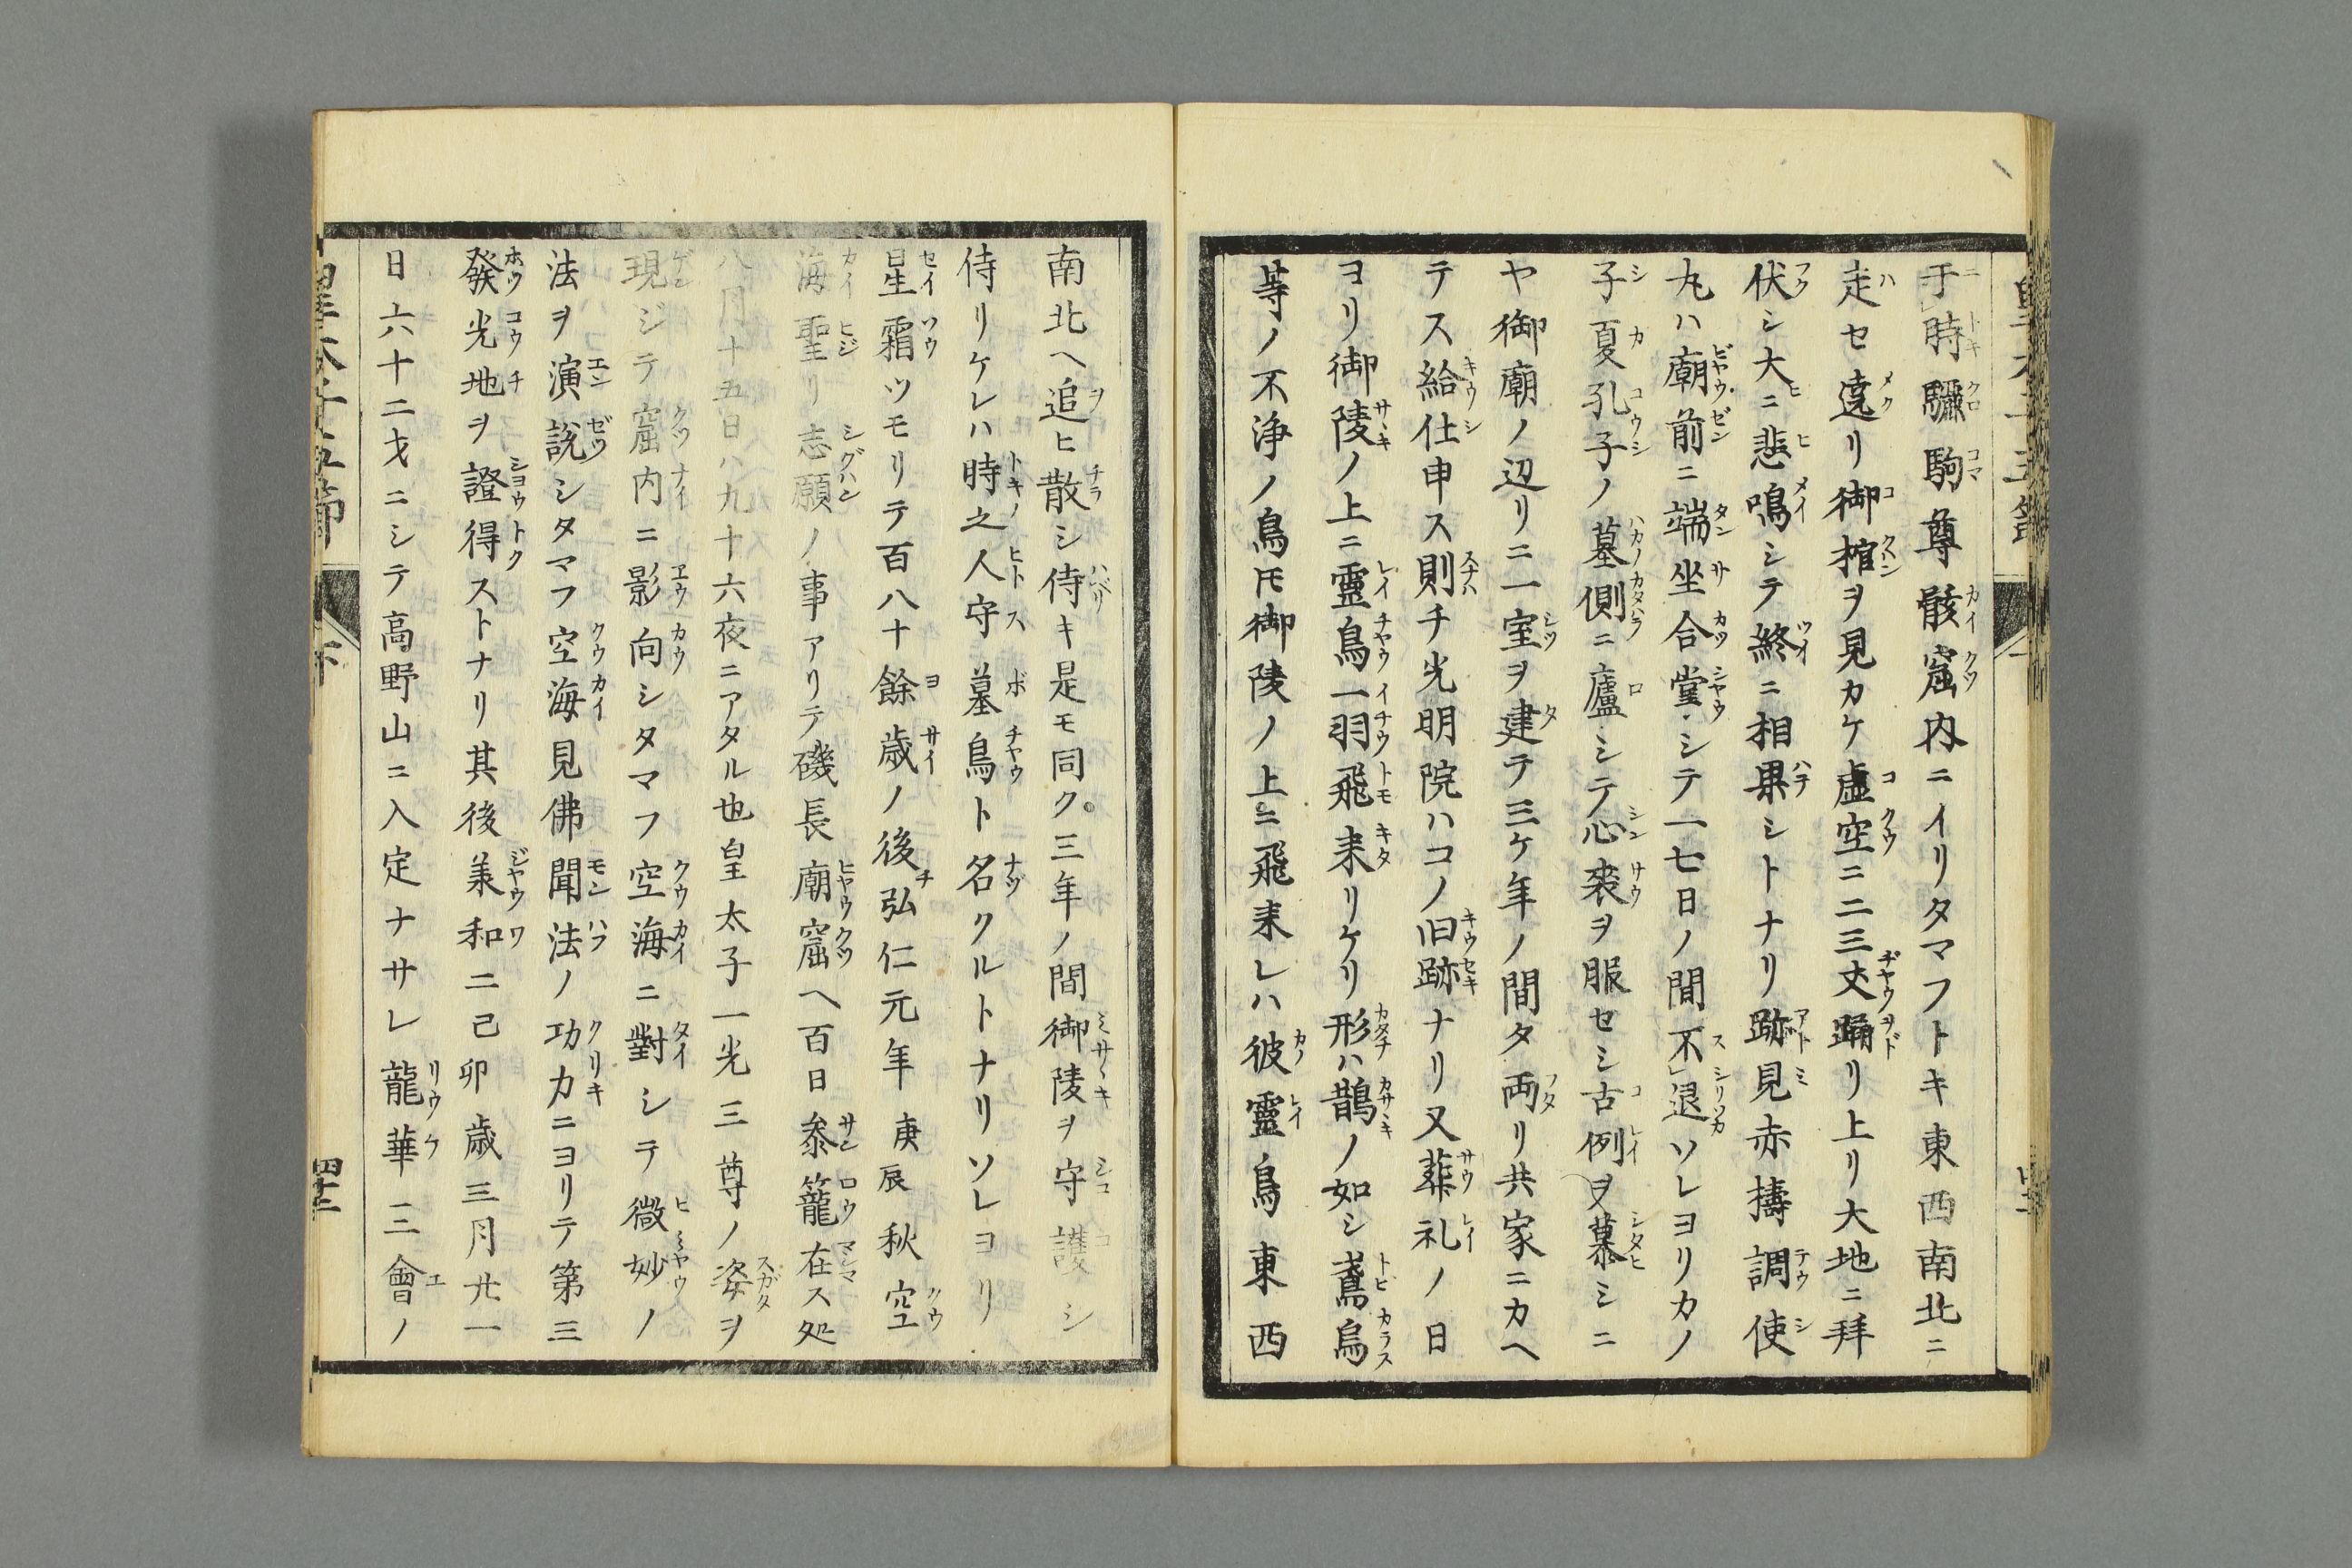 于時驪駒尊骸窟内ニイリタマフトキ東西南北ニ
走セ遶リ御棺ヲ見カケ虚空ニ二三丈踊リ上リ大地ニ拝
伏シ大ニ悲鳴シテ終ニ相果シトナリ跡見赤擣調使
丸ハ廟前ニ端坐合堂シテ一七日ノ間不退ソレヨリカノ
子夏孔子ノ墓側ニ廬シテ心衰ヲ服セシ古例ヲ慕シニ
ヤ御廟ノ辺リニ一室ヲ建テ三ケ年ノ間タ両リ共家ニカヘ
テス給仕申ス則チ光明院ハコノ旧跡ナリ又葬礼ノ日
ヨリ御陵ノ上ニ靈鳥一羽飛来リケリ形ハ鵲ノ如シ鳶烏
等ノ不浄ノ鳥𪜈御陵ノ上ニ飛来レハ彼靈鳥東西
南北ヘ追ヒ散シ侍キ是モ同ク。三年ノ間御陵ヲ守護シ
侍リケレハ時之人守墓鳥ト名クルトナリソレヨリ
星霜ツモリテ百八十餘歳ノ後弘仁元年庚辰秋空
海聖リ志願ノ事アリテ磯長廟窟ヘ百日叅籠在ス処
八月十五日ハ九十六夜ニアタル也皇太子一光三尊ノ姿ヲ
現ジテ窟内ニ影向シタマフ空海ニ對シテ微妙ノ
法ヲ演説シタマフ空海見佛聞法ノ功力ニヨリテ第三
發光地ヲ證得ストナリ其後羕和二己卯歳三月廿一
日六十二才ニシテ高野山ニ入定ナサレ龍華三會ノ
皇太子五節
下
四十二